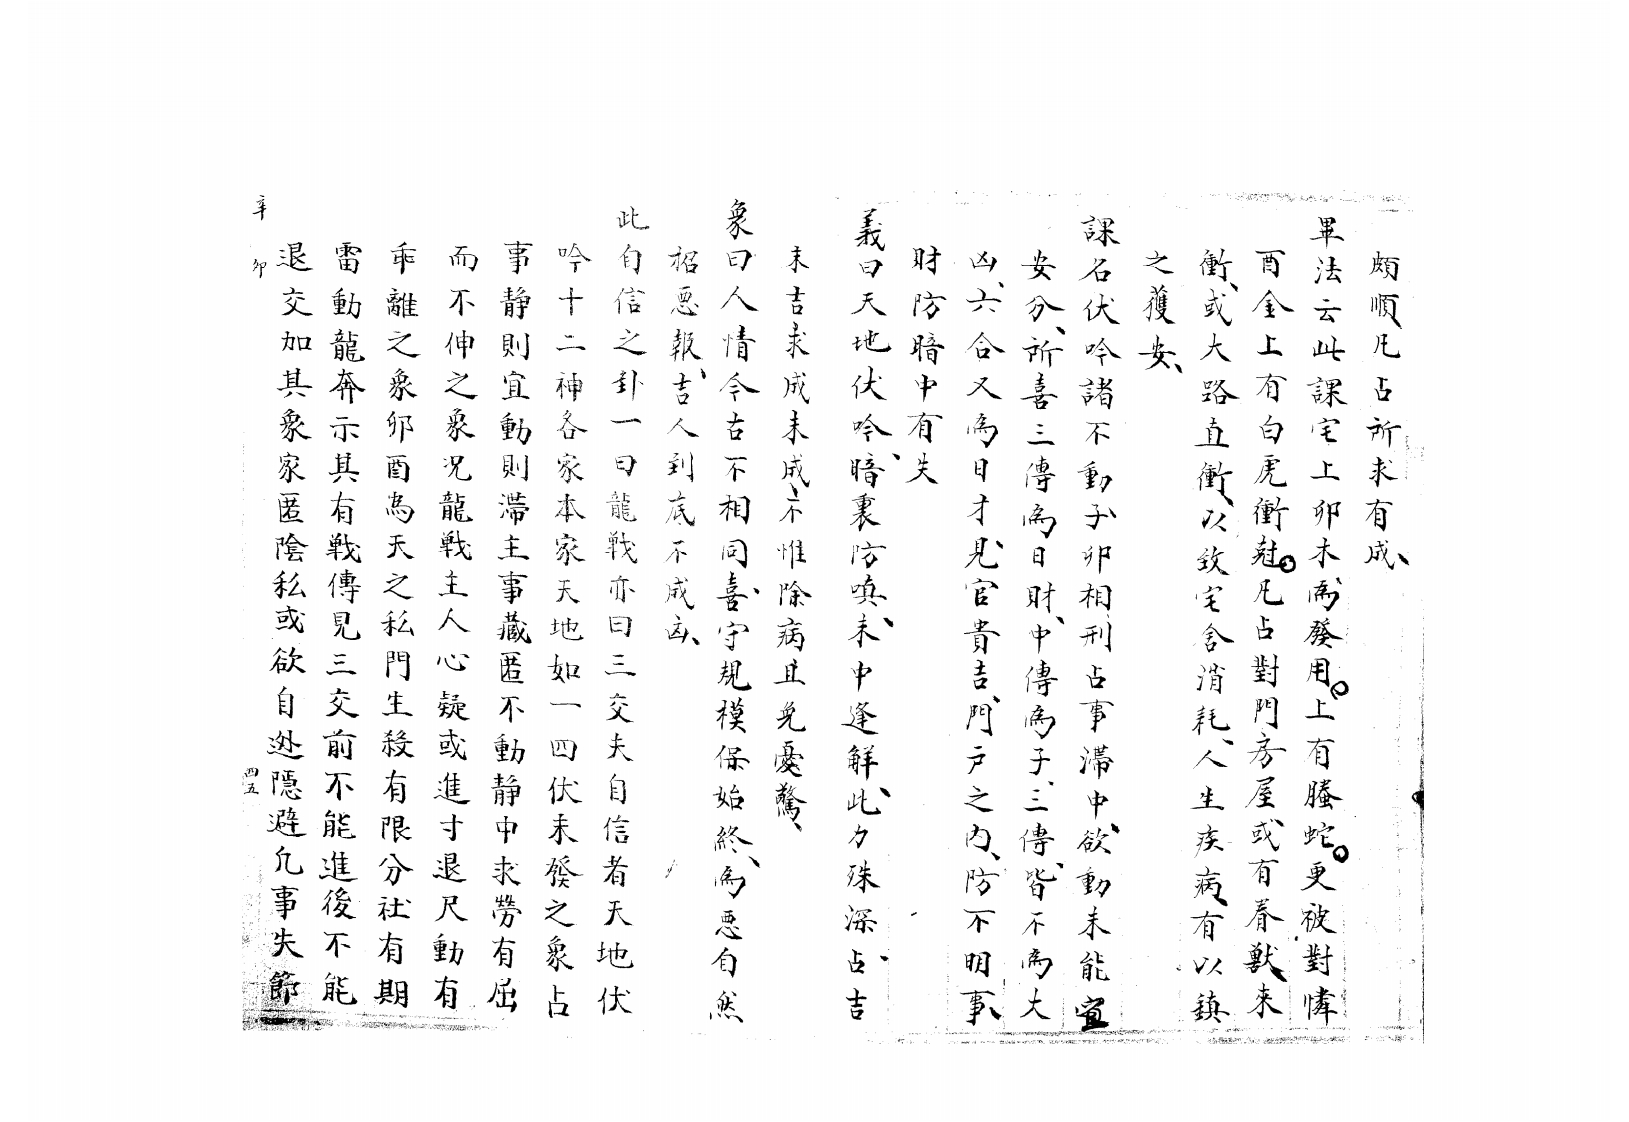 頗順、凡占所求有成、
畢法云此課宅上卯木、為發用。上有螣蛇。更被對憐
酉金上有白虎衝尅。凡占對門房屋、或有春獸、来
衝、或大路直衝、以致宅舍消耗、人生疾病、有以鎮
之獲安、
課名伏吟諸不動、子卯相刑占事滯中、欲動未能宜
安分、所喜三傳為日財、中傳為子、三傳、皆不為大
凶、六合又為日才、見官貴吉、門戶之內、防不明事、
財防暗中有失
義曰天地伏吟、暗裏防嗔、未中逢解、此力殊深、占吉
未吉求成未成、不惟除病且免憂驚、
象曰人情今古不相同、喜守規模保始終、為惡自然
招惡報、吉人到底不成凶、
此自信之卦一曰龍戰亦曰三交夫自信者天地伏
吟十二神各家本家天地如一四伏未發之象占
事靜則宜動則滯主事藏匿不動靜中求勞有屈
而不伸之象况龍戰主人心疑或進寸退尺動有
乖離之象卯酉為天之私門生殺有限分社有期
雷動龍奔示其有戰傳見三交前不能進後不能
退交加其象家匿陰私或欲自迯隱避凢事失節
辛卯
四五